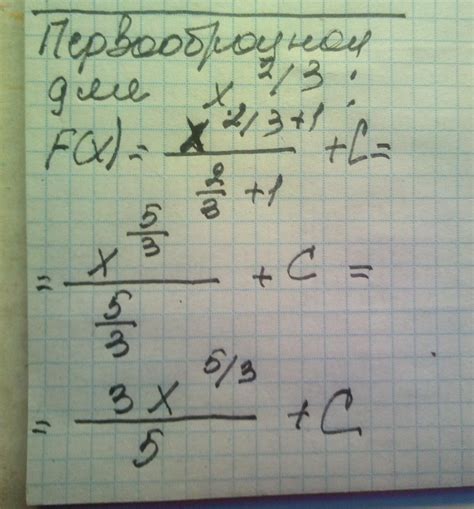 Первообразная
для x^{2/3}:
F(x) = \frac{x^{2/3+1}}{\frac{2}{3}+1} + C =
= \frac{x^{\frac{5}{3}}}{\frac{5}{3}} + C =
= \frac{3x^{5/3}}{5} + C